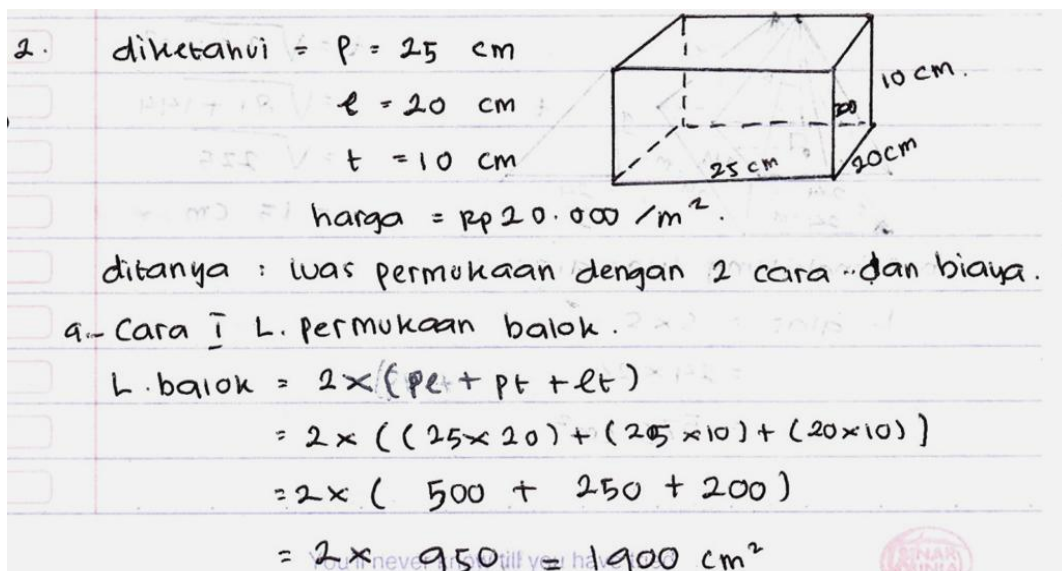 2. diketahui = p = 25 cm
l = 20 cm
t = 10 cm
10 cm.
20
25 cm
20cm
harga = Rp 20.000 /m².
ditanya : luas permukaan dengan 2 cara dan biaya.
a. Cara I L. permukaan balok.
L. balok = 2 × (pl + pt + lt)
= 2 × ((25×20) + (25×10) + (20×10))
= 2 × ( 500 + 250 + 200)
= 2 × 950 = 1900 cm²
You'll never know till you have
SINAR DUNIA